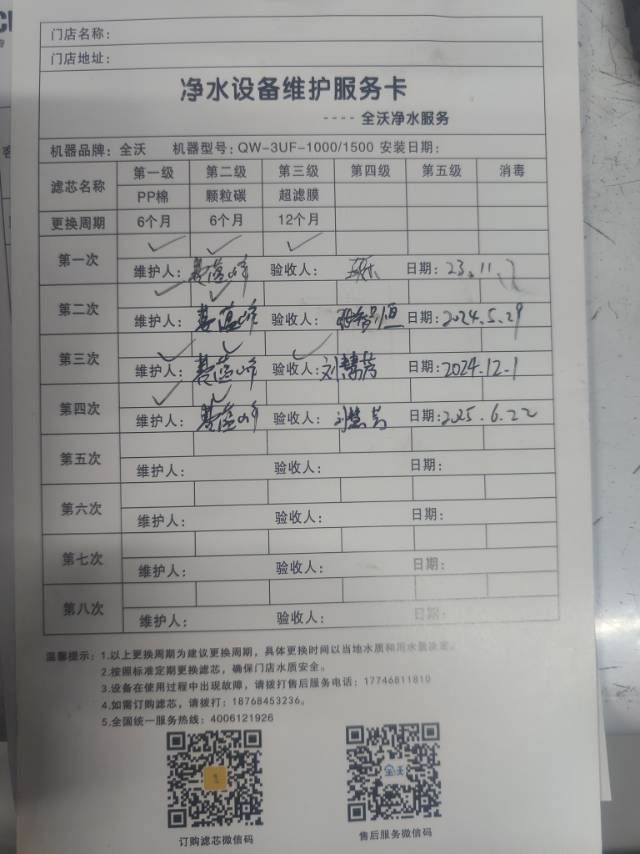 门店名称：
门店地址：
净水设备维护服务卡
---- 全沃净水服务
机器品牌：全沃 机器型号：QW-3UF-1000/1500 安装日期：
滤芯名称 第一级 第二级 第三级 第四级 第五级 消毒
PP棉 颗粒碳 超滤膜
更换周期 6个月 6个月 12个月
第一次 ✓ ✓ ✓
维护人： 验收人： 日期：23.11.
第二次 ✓ ✓
维护人： 验收人： 日期：2024.5.29
第三次 ✓ ✓ ✓
维护人： 验收人：刘慧芳 日期：2024.12.1
第四次 ✓ ✓
维护人： 验收人：刘慧芳 日期：2025.6.22
第五次
维护人： 验收人： 日期：
第六次
维护人： 验收人： 日期：
第七次
维护人： 验收人： 日期：
第八次
维护人： 验收人： 日期：
温馨提示：1.以上更换周期为建议更换周期，具体更换时间以当地水质和用水量决定。
2.按照标准定期更换滤芯，确保门店水质安全。
3.设备在使用过程中出现故障，请拨打售后服务电话：17746811810
4.如需订购滤芯，请拨打：18768453236。
5.全国统一服务热线：4006121926
全沃
订购滤芯微信码 售后服务微信码